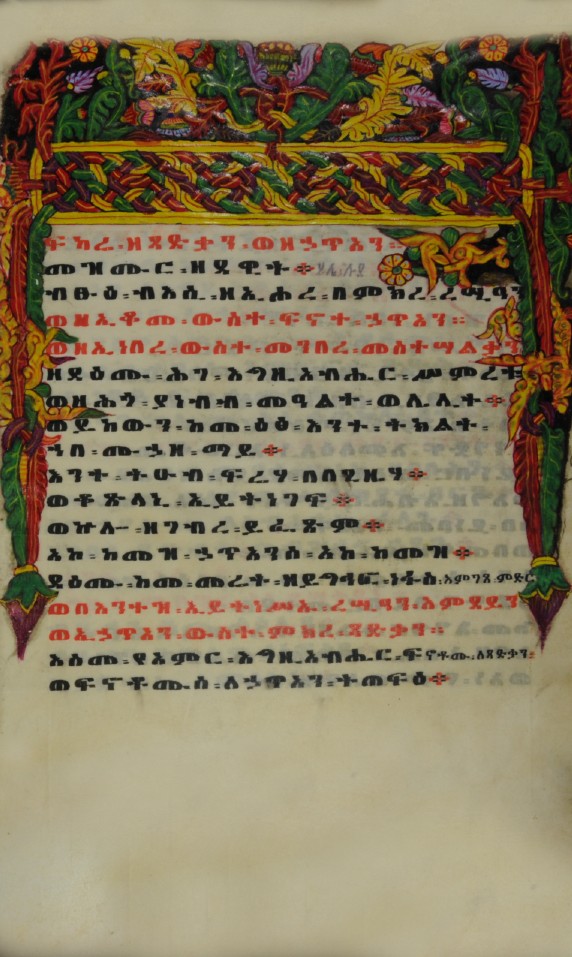 ፍካሬ፡ዘጻድታን፡ወዘኃጥአን።
መዝሙር፡ዘዳዊት፨
ብፁዕ፡ብእሲ፡ዘኢሐረ፡በምክረ፡ረሢዓን
ወዘኢቆመ፡ውስተ፡ፍኖተ፡ኃጥአን።
ወዘኢነበረ፡ውስተ፡መንበረ፡መስተሣልቃን
ዘዳዕሙ፡ሕገ፡እግዚአብሔር፡ሥምረቱ
ወዘሕጎ፡ያነብብ፡መዓልተ፡ወሌሊተ፨
ወይከውን፡ከመ፡ዕፅ፡እንተ፡ትክልት፡
ኀበ፡ሙኃዘ፡ማይ፨
እንተ፡ትሁብ፡ፍሬሃ፡በበጊዜሃ፨
ወቆጽላኒ፡ኢይትነገፍ፨
ወኵሎ፡ዘገብረ፡ይፌጽም፨
አኮ፡ከመዝ፡ኃጥአንሰ፡አኮ፡ከመዝ፨
ዳዕሙ፡ከመ፡መሬት፡ዘይግሕፎ፡ነፋስ፡እምገጸ፡ምድር
ወበእንተዝ፡ኢይትነሥኡ፡ረሢዓን፡እምደይን
ወኢኃጥአን፡ውስተ፡ምክረ፡ጻድቃን።
እስመ፡የአምር፡እግዚአብሔር፡ፍኖቶሙ፡ለጻድቃን፡
ወፍኖቶሙሰ፡ለኃጥአን፡ተጠፍዕ፨